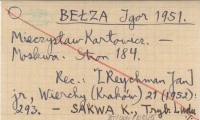 BEŁZA Igor 1951.
Mieczysław Karłowicz. —
Moskwa. Stron 184.
Rec.: [Reychman Jan]
jr, Wierchy (Kraków) 21 (1952):
293. — SAKWA K., Tryb. Ludu